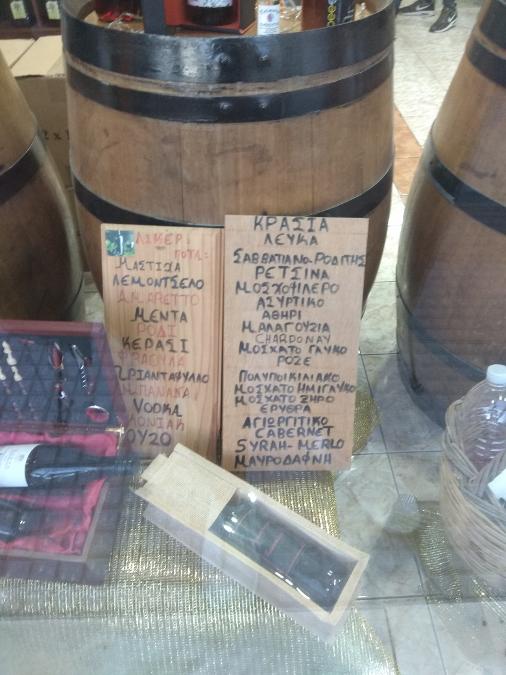 ΛΙΚΕΡ
ΠΟΤΑ:
ΜΑΣΤΙΧΑ
ΛΕΜΟΝΤΣΕΛΟ
ΑΜΑΡΕΤΤΟ
ΜΕΝΤΑ
ΡΟΔΙ
ΚΕΡΑΣΙ
ΦΡΑΟΥΛΑ
ΤΡΙΑΝΤΑΦΥΛΛΟ
ΜΠΑΝΑΝΑ
VODKA
ΚΟΝΙΑΚ
ΟΥΖΟ
ΚΡΑΣΙΑ
ΛΕΥΚΑ
ΣΑΒΒΑΤΙΑΝΟ-ΡΟΔΙΤΗΣ
ΡΕΤΣΙΝΑ
ΜΟΣΧΟΦΙΛΕΡΟ
ΑΣΥΡΤΙΚΟ
ΑΘΗΡΙ
ΜΑΛΑΓΟΥΖΙΑ
CHARDONAY
ΜΟΣΧΑΤΟ ΓΛΥΚΟ
ΡΟΖΕ
ΠΟΛΥΠΟΙΚΙΛΙΑΚΟ
ΜΟΣΧΑΤΟ ΗΜΙΓΛΥΚΟ
ΜΟΣΧΑΤΟ ΞΗΡΟ
ΕΡΥΘΡΑ
ΑΓΙΩΡΓΙΤΙΚΟ
CABERNET
SYRAH-MERLO
ΜΑΥΡΟΔΑΦΝΗ